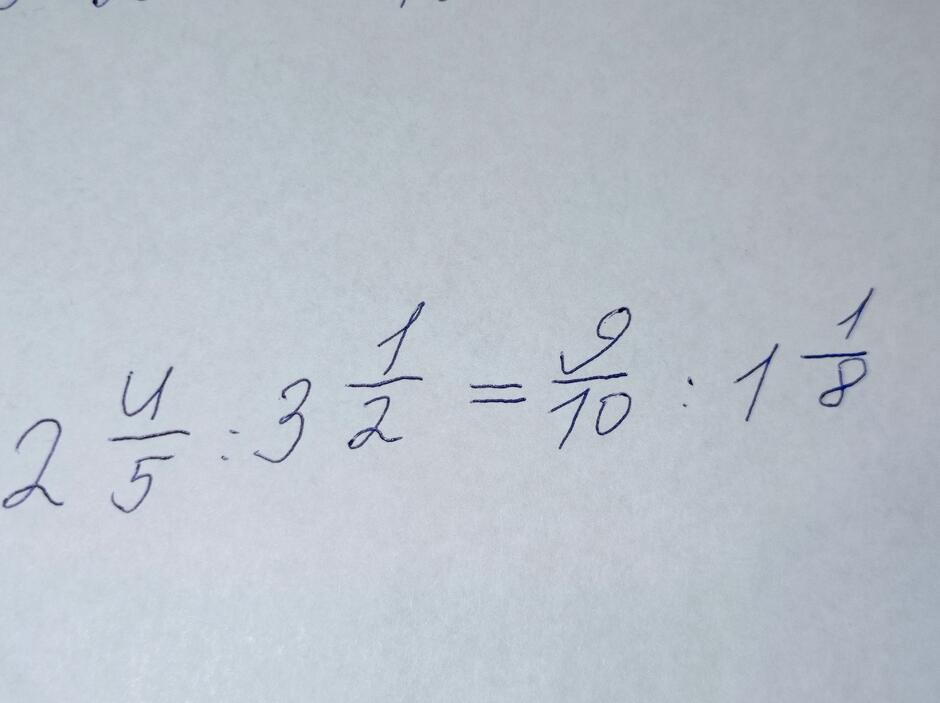 2 4/5 : 3 1/2 = 9/10 : 1 1/8